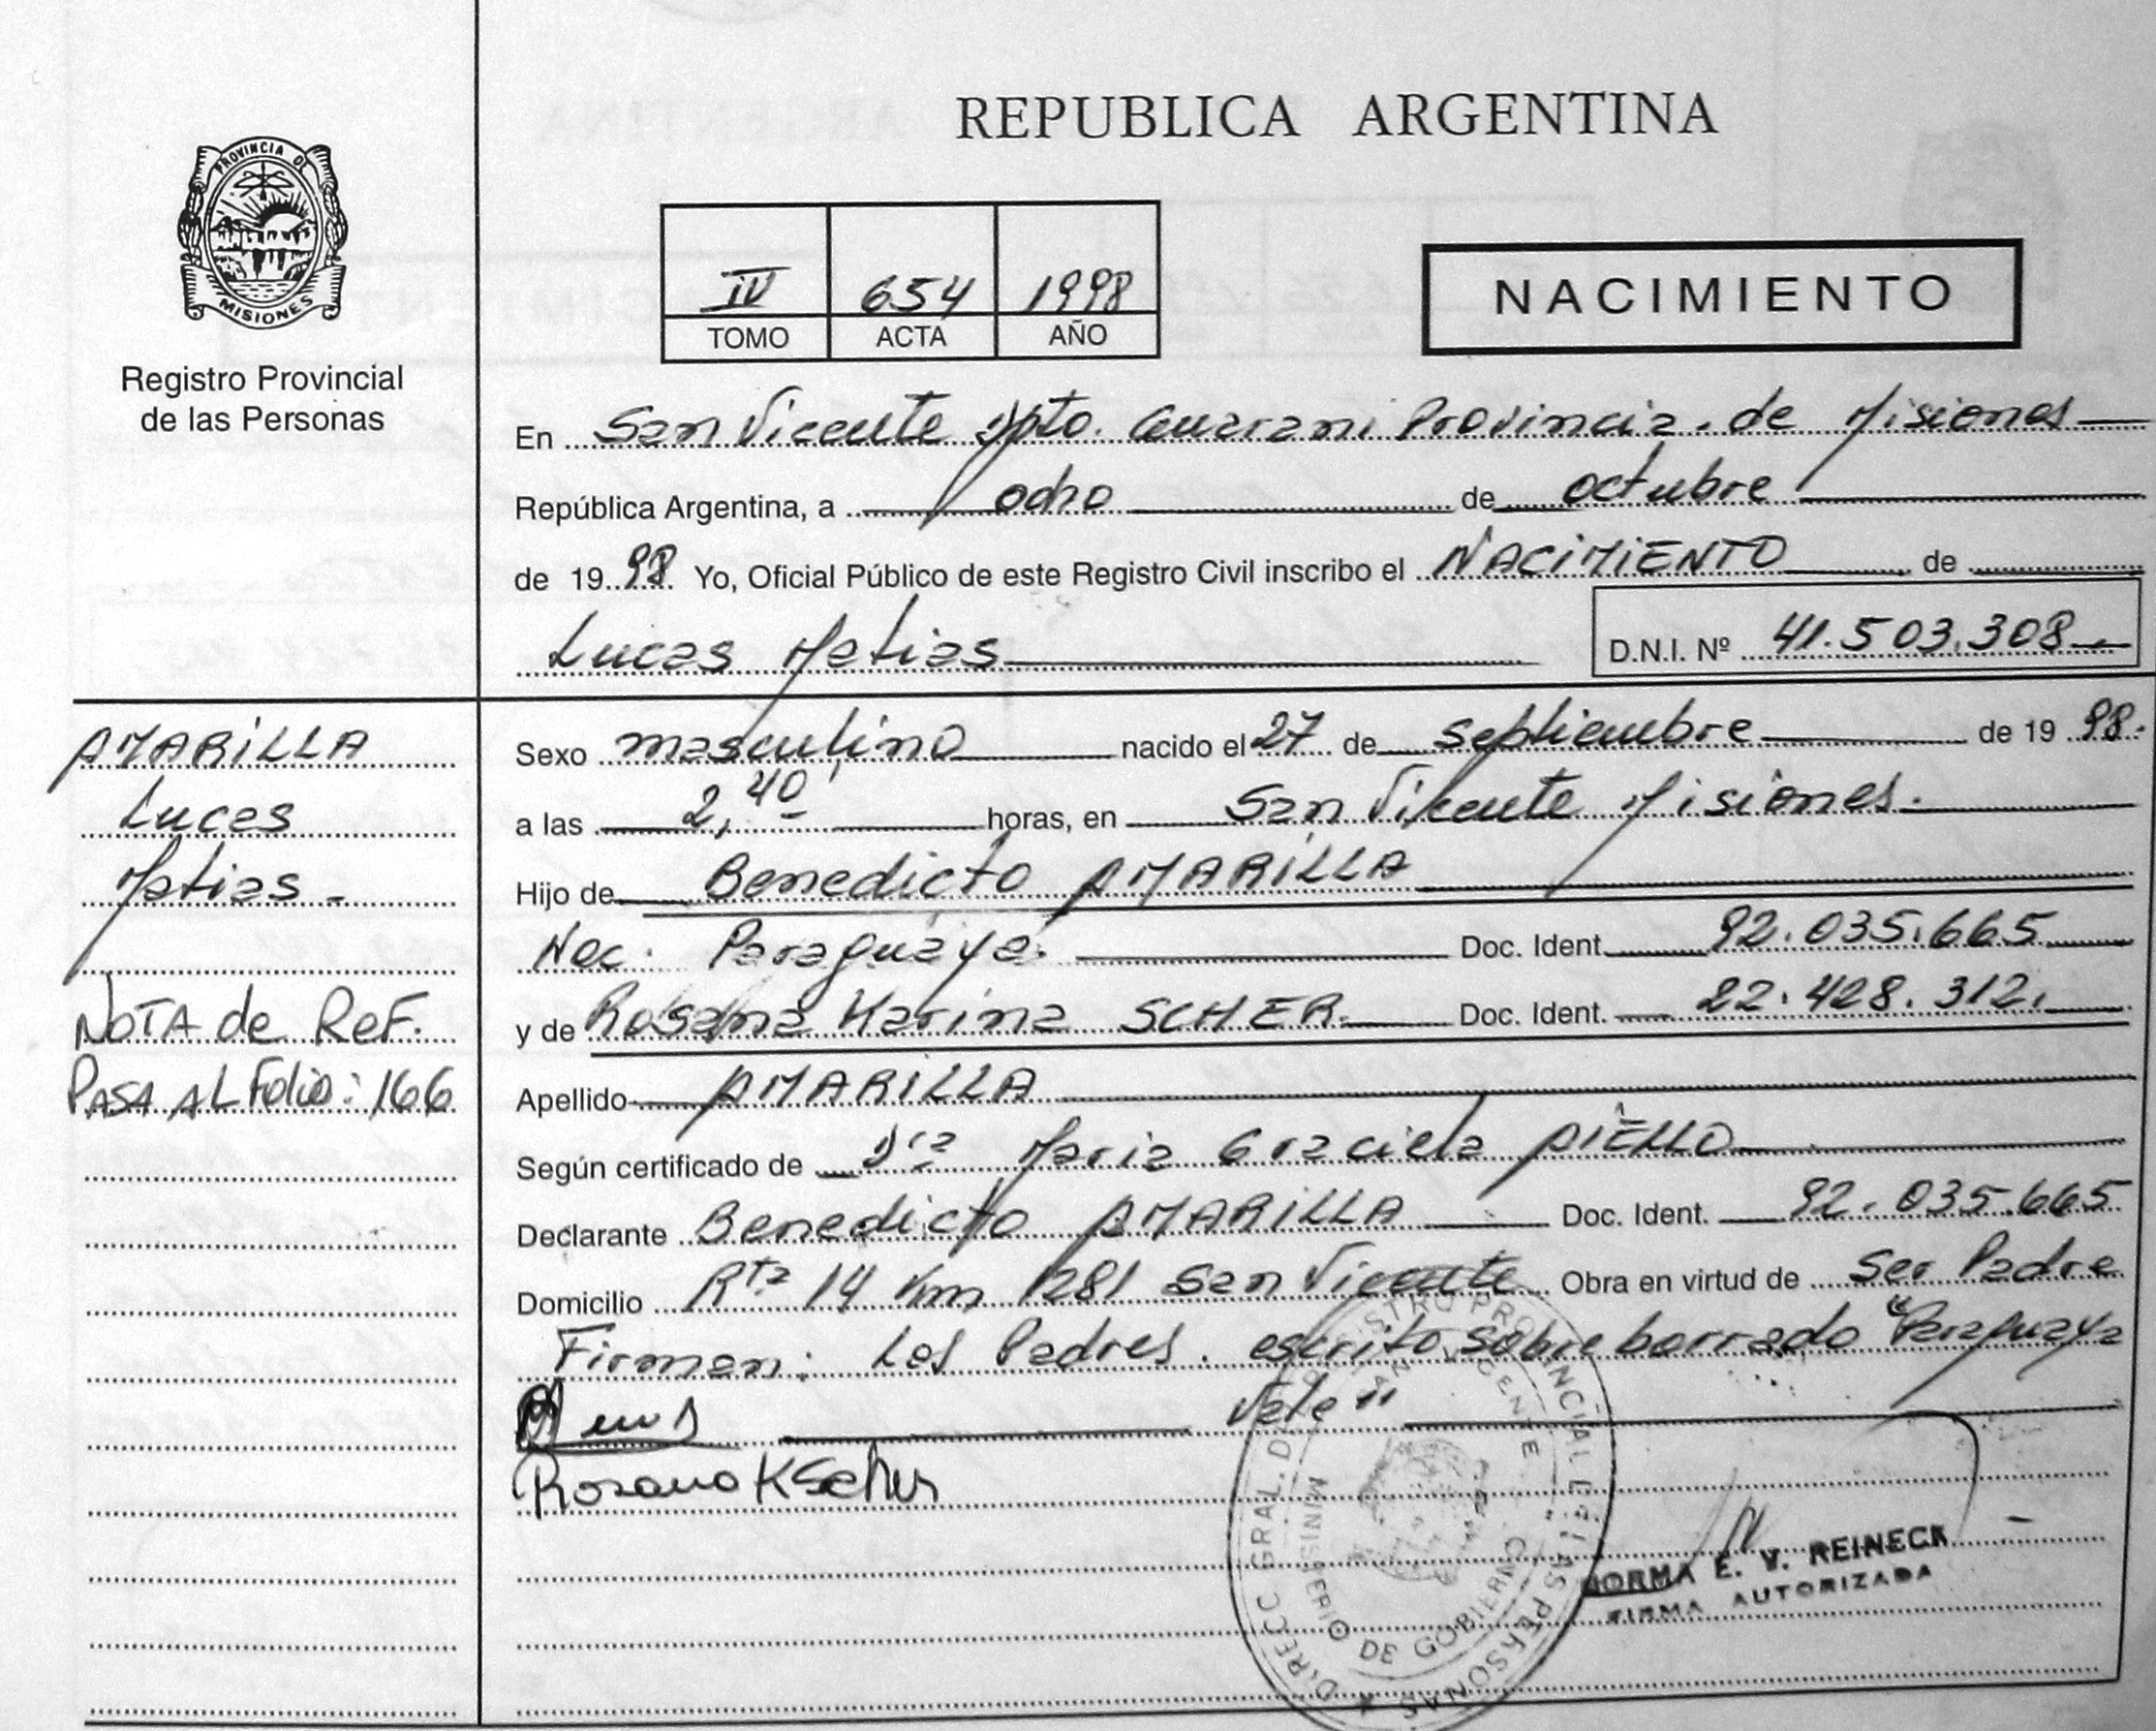 REPUBLICA ARGENTINA
PROVINCIA DE
MISIONES
Registro Provincial
de las Personas
IV 654 1998
TOMO ACTA AÑO
NACIMIENTO
En San Vicente Dpto. Guarani Provincia de Misiones
República Argentina, a ocho de octubre
de 1998 Yo, Oficial Público de este Registro Civil inscribo el NACIMIENTO de
Lucas Matias
D.N.I. Nº 41.503.308
AMARiLLA
Lucas
Matias
NOTA de ReF.
PASA AL Folio: 166
Sexo masculino nacido el 27 de septiembre de 1998.
a las 2,40 horas, en San Vicente Misiones.
Hijo de Benedicto AMARiLLA
Nac: Paraguaya. Doc. Ident. 92.035.665
y de Rosana Karina SCHER. Doc. Ident. 22.428.312.
Apellido AMARiLLA
Según certificado de Dra Maria Graciela
Declarante Benedicto AMARiLLA Doc. Ident. 92.035.665
Domicilio Rta 14 Km 1281 San Vicente Obra en virtud de Ser Padre
Firman: Los Padres. escrito sobre borrado "Paraguaya
Vale"
Rosana K Scher
DIRECC GRAL. DEL REGISTRO PROVINCIAL DE LAS PERSONAS
SAN VICENTE
MINISTERIO DE GOBIERNO
NORMA E. V. REINECK
FIRMA AUTORIZADA